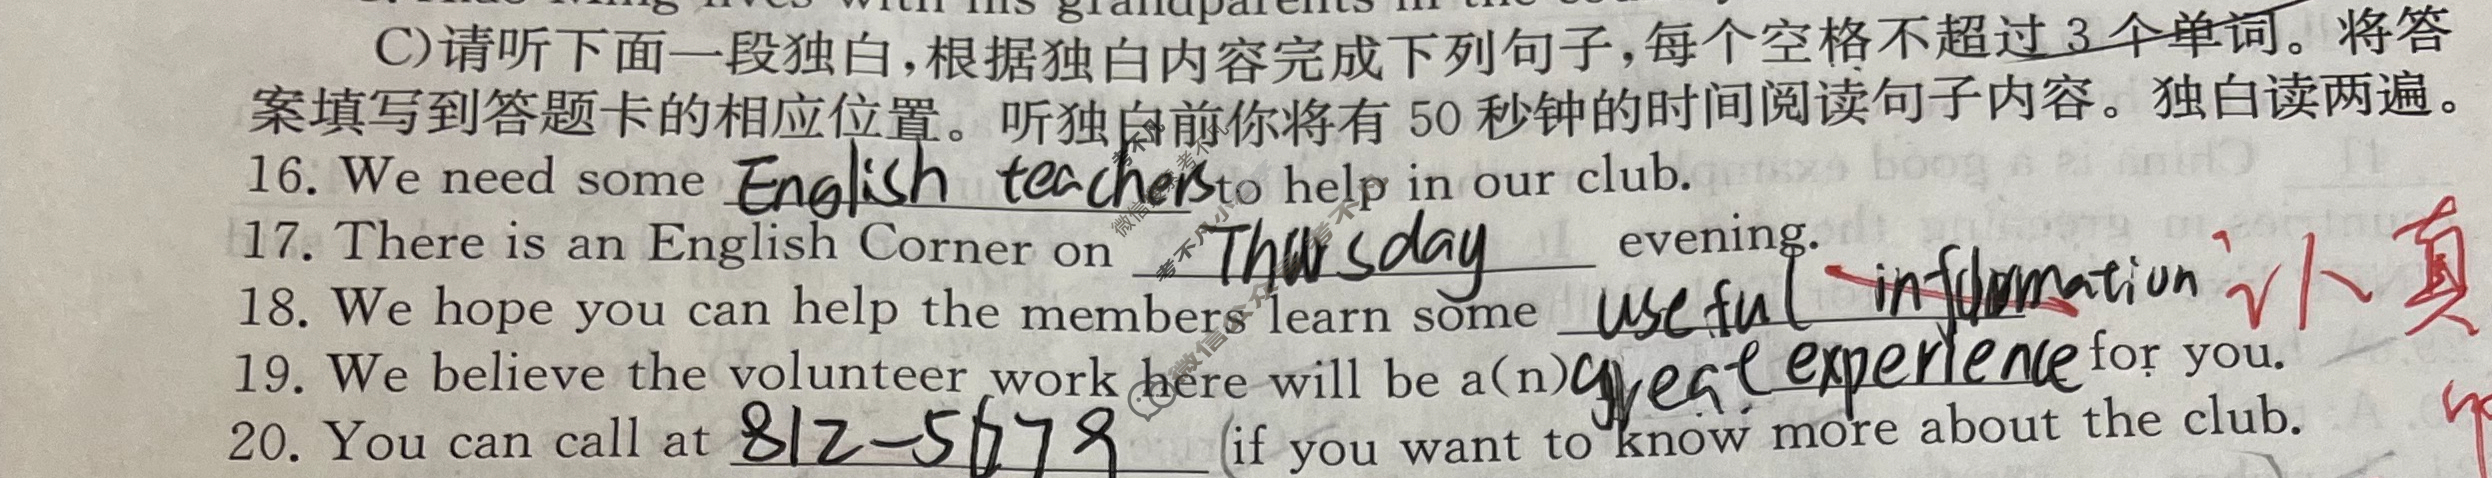 C)请听下面一段独白,根据独白内容完成下列句子,每个空格不超过3个单词。将答
案填写到答题卡的相应位置。听独白前你将有50秒钟的时间阅读句子内容。独白读两遍。
16. We need some English teachers to help in our club.
17. There is an English Corner on Thursday evening.
18. We hope you can help the members learn some useful information 认真
19. We believe the volunteer work here will be a(n) great experience for you.
20. You can call at 812-5678 (if you want to know more about the club.